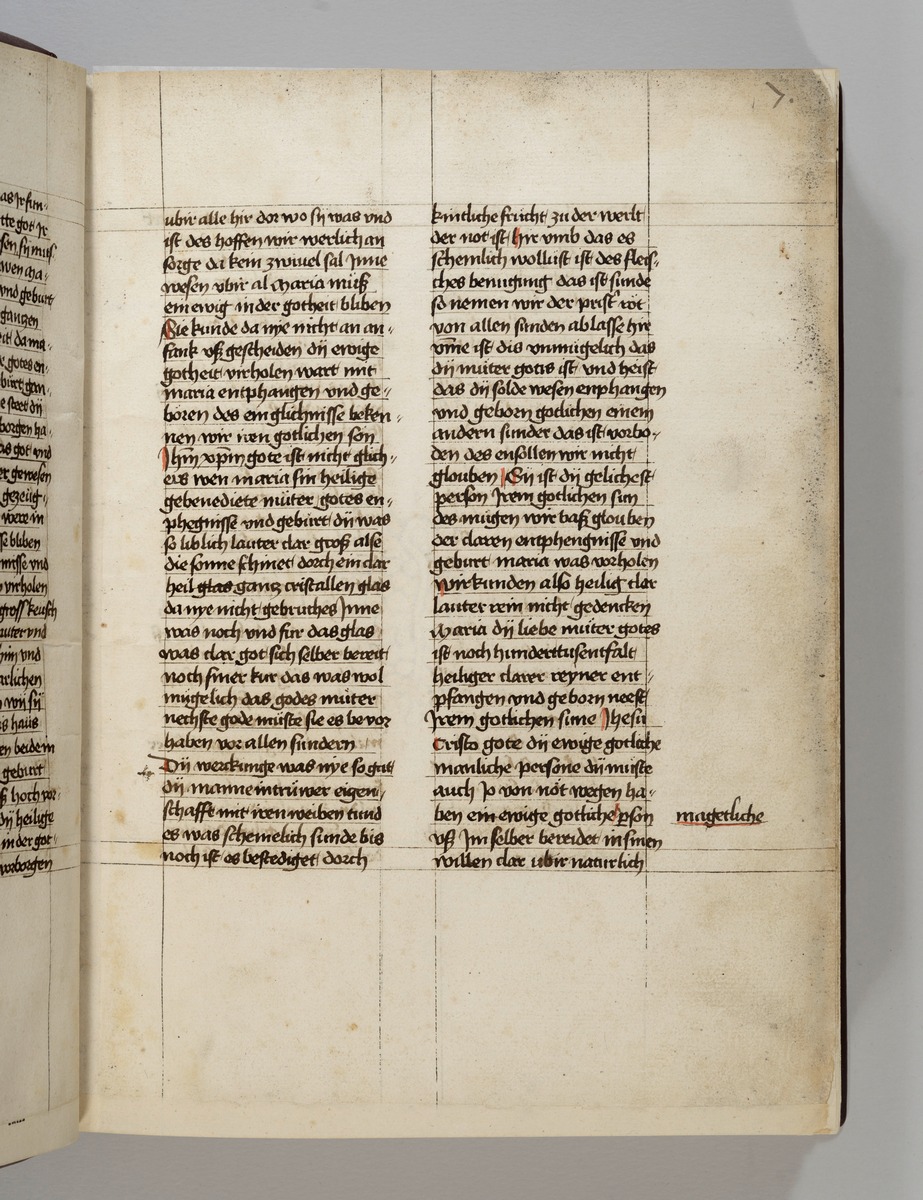 7.
ubir alle hir dor wo sij was vnd
ist des hoffen wir werlich an
sorge da kem zwiuel sal Jnne
wesen vbir al Maria muß
ein ewig in der gotheit bliben
Sie kunde da nye nicht an an-
fank vß gescheiden dij ewige
gotheit virholen wart mit
maria entphangen vnd ge-
boren des ein glichnisse beken-
nen wir iren gotlichen son
Jhm xpm gote ist nicht glich-
ers wen maria sin heilige
gebenediete muter gotes en-
phegnisse vnd geburt dij was
so liblich lauter clar groß alse
die sonne schinet dorch ein clar
heil glas gantz cristallen glas
da nye nicht gebruches Jnne
was noch vnd fur das glas
was clar got sich selber bereit
noch siner kur das was wol
mugelich das godes muter
nechste gode muste sie es bevor
haben vor allen sundern
Dij werckunge was nye so gut
dij manne intruwer eigen-
schafft mit iren weiben tund
es was schemelich sunde bis
noch ist es bestediget dorch
kintliche frucht zu der werlt
der not ist hir vmb das es
schemlich wollust ist des fleis-
ches benugung das ist sunde
so nemen wir der prist rot
von allen sunden ablasse hir
vmme ist dis vnmugelich das
dij muter gotis ist vnd heist
das dij solde wesen enphangen
vnd geborn gotlichen einem
andern sunder das ist vorbo-
den des ensollen wir nicht
glouben Sij ist dij gelichest
person Jrem gotlichen sun
des mugen wir baß glouben
der claren entphengnisse vnd
geburt maria was vorholen
wir kunden also heilig clar
lauter rein nicht gedencken
Maria dij liebe muter gotes
ist noch hunderttusentfalt
heiliger clarer reyner ent-
pfangen vnd geborn neest
Jrem gotlichen sune Jhesu
Cristo gote dij ewige gotliche
manliche persone dij muste
auch Jo von not wegen ha-
ben ein ewige gotliche person magetliche
vß Jm selber bereidet in sinen
willen clar ubir naturlich